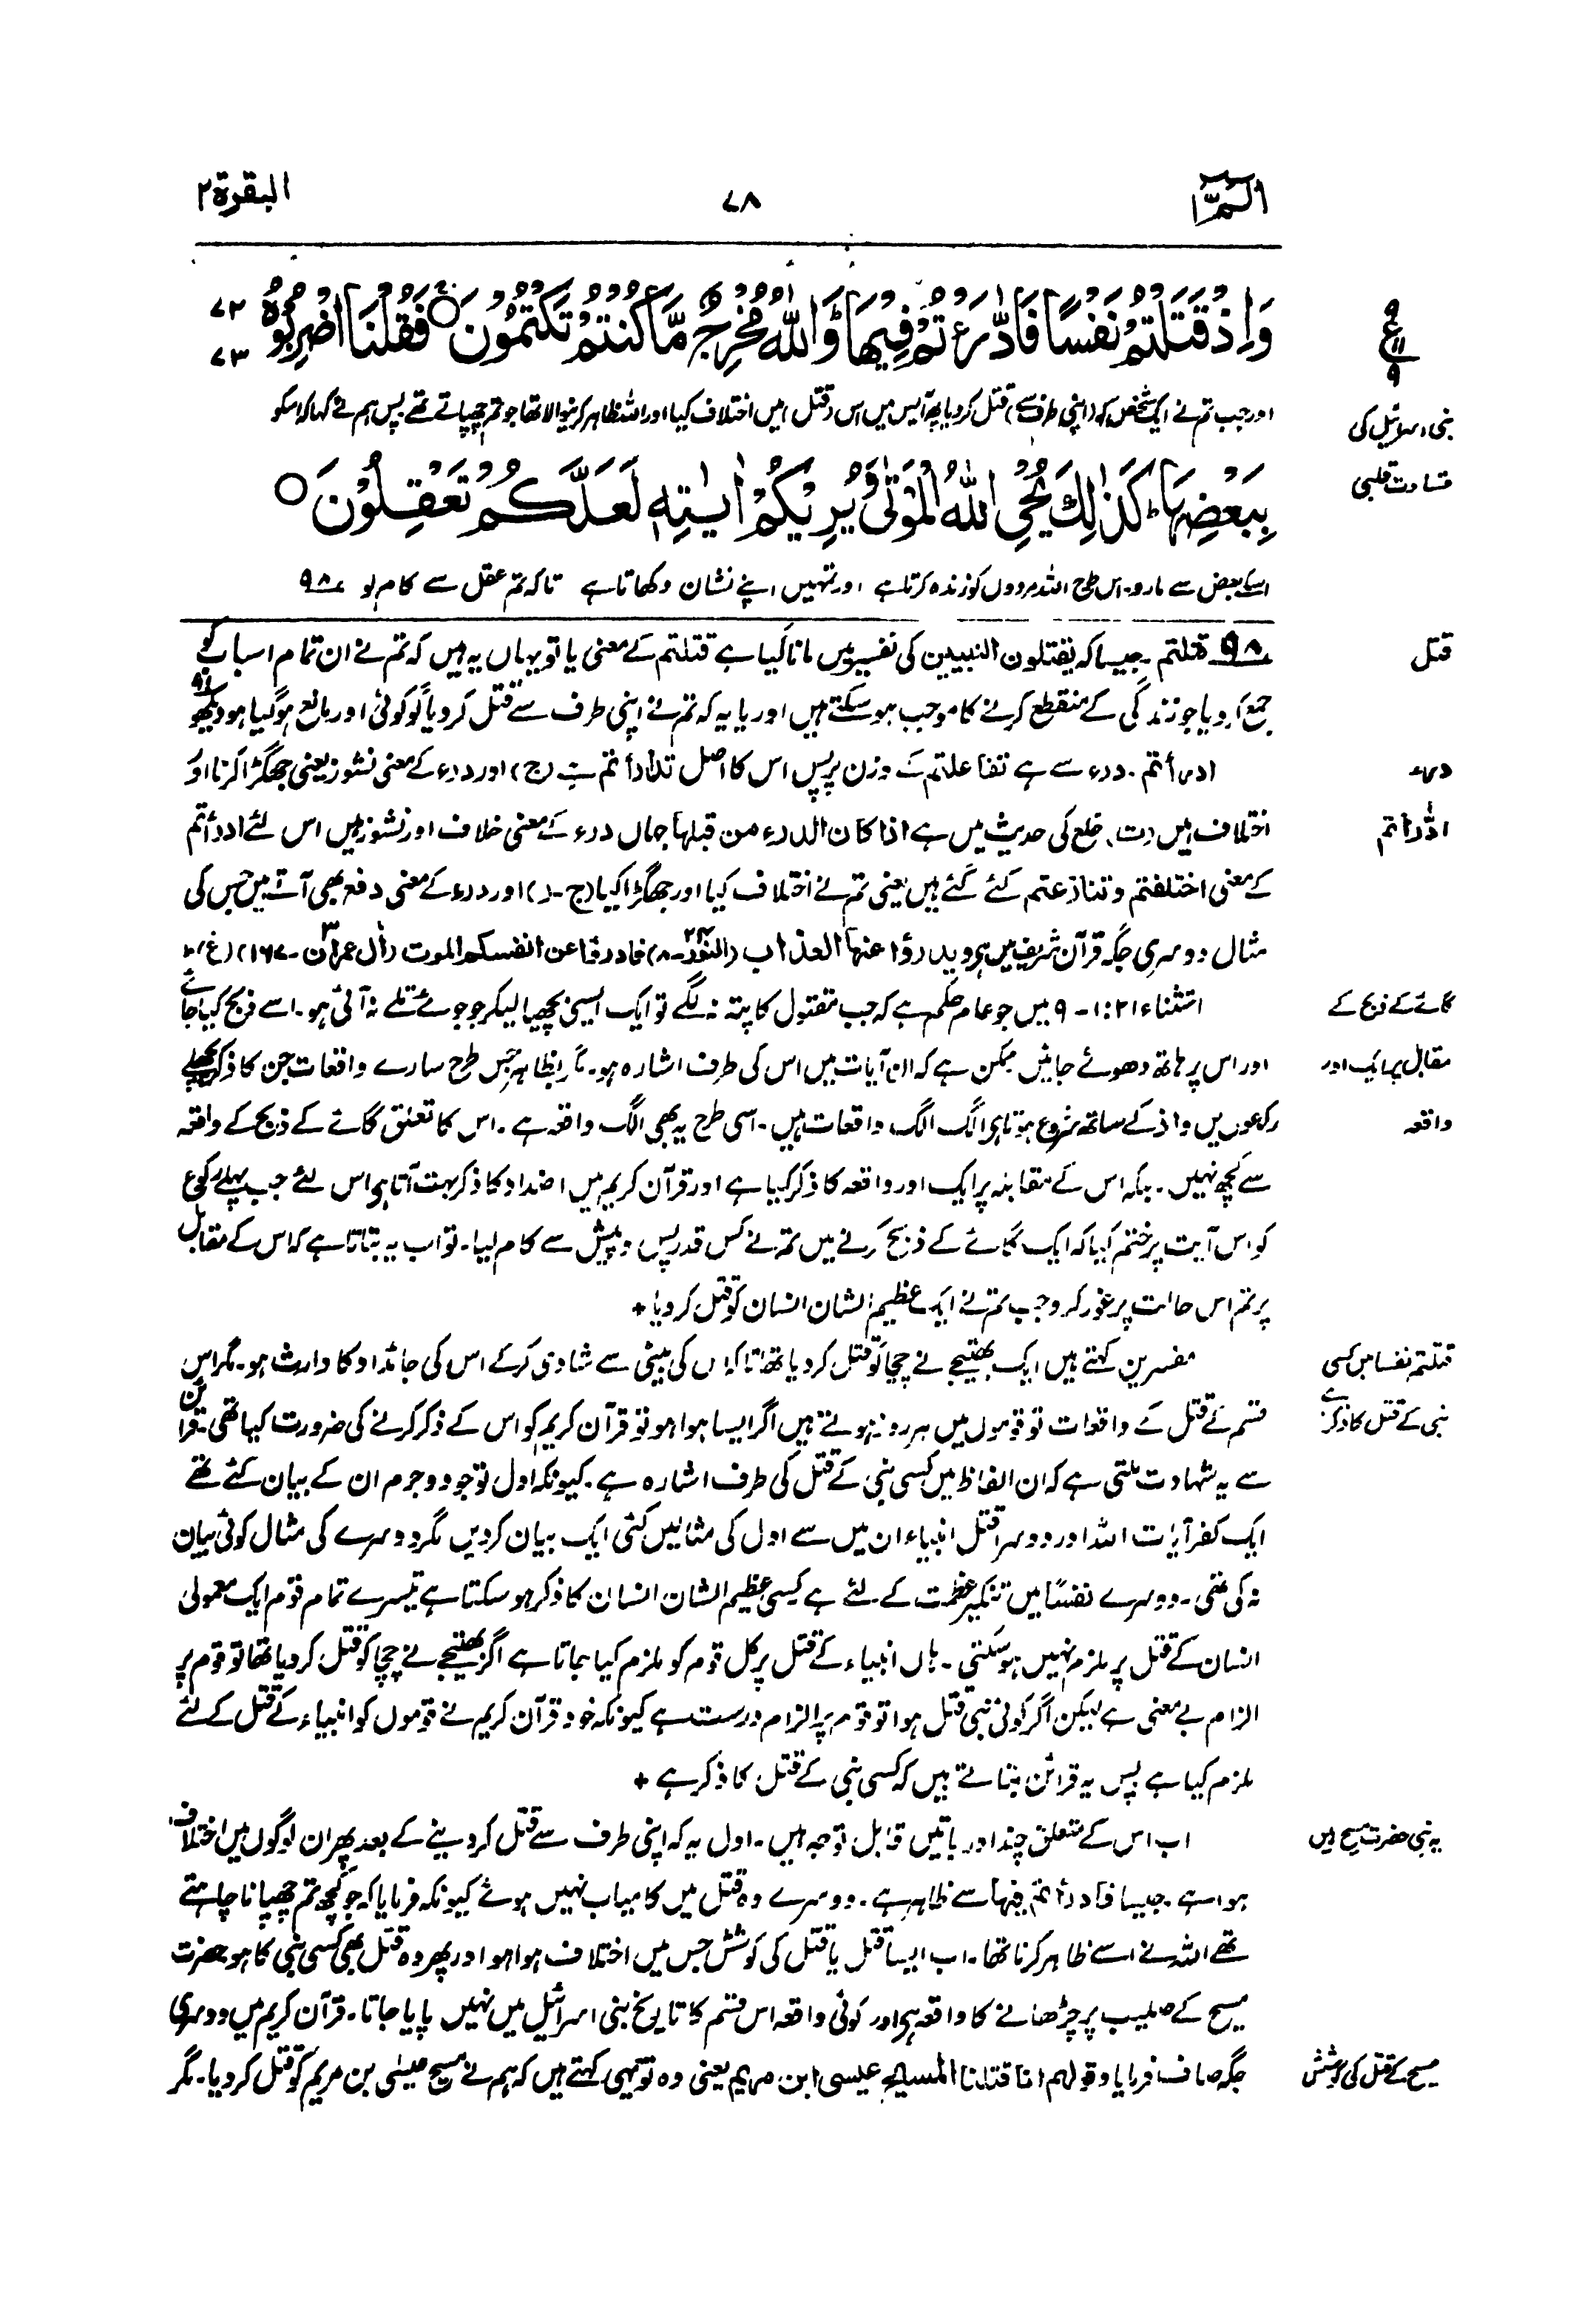 الٓمّٓ ۱
۷۸
البقرة ۲
وَاِذْ قَتَلْتُمْ نَفْسًا فَادّٰرَءْتُمْ فِيْهَا ؕ وَاللّٰهُ مُخْرِجٌ مَّا كُنْتُمْ تَكْتُمُوْنَ ○ فَقُلْنَا اضْرِبُوْهُ
۷۲
۷۳
۹
ع
۱۱
۹
اور جب تم نے ایک شخص کو (اپنی طرف سے) قتل کر دیا پھر آپس میں اس (قتل) میں اختلاف کیا اور اللہ ظاہر کرنیوالا تھا جو تم چھپاتے تھے پس ہم نے کہا کہ اسکو
بنی اسرائیل کی
قساوت قلبی
بِبَعْضِهَا ؕ كَذٰلِكَ يُحْيِ اللّٰهُ الْمَوْتٰى وَيُرِيْكُمْ اٰيٰتِهٖ لَعَلَّكُمْ تَعْقِلُوْنَ ○
اسکے بعض سے مارو۔ اس طرح اللہ مردوں کو زندہ کرتا ہے اور تمہیں اپنے نشان دکھاتا ہے تاکہ تم عقل سے کام لو ۹۸
قتل
۹۸ قتلتم۔ جیسا کہ یقتلون النبیین کی تفسیر میں مانا گیا ہے قتلتم کے معنی یا تو یہاں یہ ہیں کہ تم نے ان تمام اسباب کو
جمع کر دیا جو زندگی کے منقطع کرنے کا موجب ہو سکتے ہیں اور یا یہ کہ تم نے اپنی طرف سے قتل کر دیا گو کوئی اور مانع ہو گیا ہو دیکھو ۹۱
درء
ادرأتم۔ درء سے ہے تفاعلتم کے وزن پر پس اس کا اصل تدارأتم ہے (ج) اور درء کے معنی نشوز یعنی جھگڑا کرنا اور
ادّٰرأتم
اختلاف ہیں (ت) خلع کی حدیث میں ہے اذا کان الدرء من قبلھا جہاں درء کے معنی خلاف اور نشوز ہیں اس لئے ادرأتم
کے معنی اختلفتم وتنازعتم کئے گئے ہیں یعنی تم نے اختلاف کیا اور جھگڑا کیا (ج۔ر) اور درء کے معنی دفع بھی آتے ہیں جس کی
مثال دوسری جگہ قرآن شریف میں ہے ویدرؤا عنھا العذاب (النور ۲۴۔۸) فادرءوا عن انفسکم الموت (اٰل عمران ۳۔۱۶۷) (غ)+
گائے کے ذبح کے
استثناء ۲۱:۱-۹ میں جو عام حکم ہے کہ جب مقتول کا پتہ نہ لگے تو ایک ایسی بچھیا لیکر جو جوئے تلے نہ آئی ہو۔ اسے ذبح کیا جائے
مقابل پر ایک اور
اور اس پر ہاتھ دھوئے جائیں ممکن ہے کہ ان آیات میں اس کی طرف اشارہ ہو۔ مگر بظاہر جس طرح سارے واقعات جن کا ذکر پچھلے
واقعہ
رکوعوں میں واذ کے ساتھ شروع ہوتا ہے الگ الگ واقعات ہیں۔ اسی طرح یہ بھی الگ واقعہ ہے۔ اس کا تعلق گائے کے ذبح کے واقعہ
سے کچھ نہیں۔ بلکہ اس کے مقابلہ پر ایک اور واقعہ کا ذکر کیا ہے اور قرآن کریم میں اضداد کا ذکر بہت آتا ہے اس لئے جب پہلے رکوع
کو اس آیت پر ختم کیا کہ ایک گائے کے ذبح کرنے میں تم نے کس قدر پس وپیش سے کام لیا۔ تو اب یہ بتاتا ہے کہ اس کے مقابل
پر تم اس حالت پر غور کرو جب تم نے ایک عظیم الشان انسان کو قتل کر دیا +
قتلتم نفسا میں کسی
مفسرین کہتے ہیں ایک بھتیجے نے چچا کو قتل کر دیا تھا تا کہ اس کی بیٹی سے شادی کر کے اس کی جائداد کا وارث ہو۔ مگر اس
نبی کے قتل کا ذکر ہے
قسم کے قتل کے واقعات تو قوموں میں ہر روز ہوتے ہیں اگر ایسا ہوا ہو تو قرآن کریم کو اس کے ذکر کرنے کی ضرورت کیا تھی۔ قرآن
سے یہ شہادت ملتی ہے کہ ان الفاظ میں کسی نبی کے قتل کی طرف اشارہ ہے۔ کیونکہ اول تو جو دو جرم ان کے بیان کئے تھے
ایک کفر آیات اللہ اور دوسرا قتل انبیاء ان میں سے اول کی مثالیں کئی ایک بیان کر دیں مگر دوسرے کی مثال کوئی بیان
نہ کی تھی۔ دوسرے نفسًا میں تنکیر عظمت کے لئے ہے کسی عظیم الشان انسان کا ذکر ہو سکتا ہے تیسرے تمام قوم ایک معمولی
انسان کے قتل پر ملزم نہیں ہو سکتی۔ ہاں انبیاء کے قتل پر کل قوم کو ملزم کیا جاتا ہے اگر بھتیجے نے چچا کو قتل کر دیا تھا تو قوم پر
الزام بے معنی ہے لیکن اگر کوئی نبی قتل ہوا تو قوم پر الزام درست ہے کیونکہ خود قرآن کریم نے قوموں کو انبیاء کے قتل کے لئے
ملزم کیا ہے پس یہ قرائن بتاتے ہیں کہ کسی نبی کے قتل کا ذکر ہے +
یہ نبی حضرت مسیح ہیں
اب اس کے متعلق چند اور باتیں قابل توجہ ہیں۔ اول یہ کہ اپنی طرف سے قتل کر دینے کے بعد پھر ان لوگوں میں اختلاف
ہوا ہے۔ جیسا فادرأتم فیھا سے ظاہر ہے۔ دوسرے وہ قتل میں کامیاب نہیں ہوئے کیونکہ فرمایا کہ جو کچھ تم چھپانا چاہتے
تھے اللہ نے اسے ظاہر کرنا تھا۔ اب ایسا قتل یا قتل کی کوشش جس میں اختلاف ہوا ہو اور پھر وہ قتل بھی کسی نبی کا ہو حضرت
مسیح کے صلیب پر چڑھانے کا واقعہ ہے اور کوئی واقعہ اس قسم کا تاریخ بنی اسرائیل میں نہیں پایا جاتا۔ قرآن کریم میں دوسری
مسیح کے قتل کی کوشش
جگہ صاف فرمایا وقولھم انا قتلنا المسیح عیسی ابن مریم یعنی وہ تو یہی کہتے ہیں کہ ہم نے مسیح عیسیٰ بن مریم کو قتل کر دیا۔ مگر